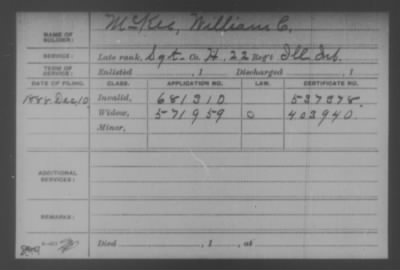 NAME OF SOLDIER: McKee, William C.
SERVICE: Late rank, Sgt. Co. H, 22 Reg't Ill Inf.
TERM OF SERVICE: Enlisted , 1 Discharged , 1
DATE OF FILING. CLASS. APPLICATION NO. LAW. CERTIFICATE NO.
1888 Dec, 10 Invalid, 681310 537378.
Widow, 571959 O 403940
Minor,
ADDITIONAL SERVICES:
REMARKS:
Died , 1 , at